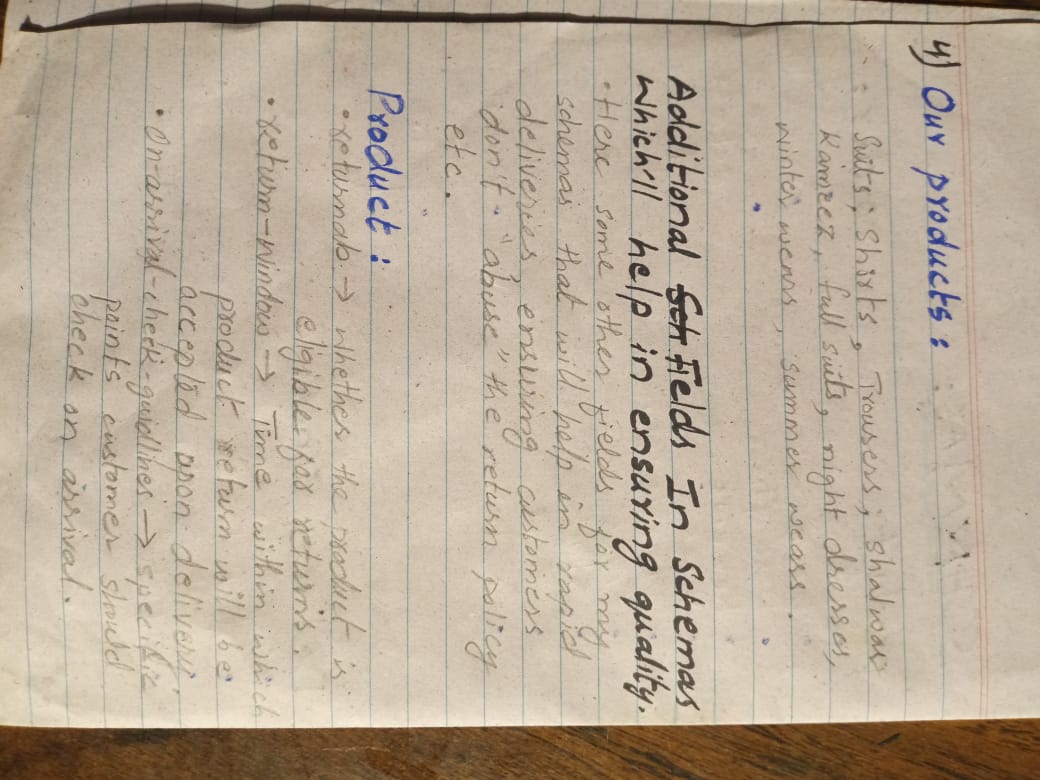 4) Our products :
Suits; Shirts, Trousers; shalwar
Kameez, full suits, night dresses,
winter wears, summer wears.
Additional Sch Fields In Schemas
Which'll help in ensuring quality.
• Here some other fields for my
schemas that will help in rapid
deliveries, ensuring customers
don't "abuse" the return policy
etc.
Product :
• returnab → whether the product is
eligible for returns.
• return-window → Time within which
product return will be
accepted upon delivery.
• On-arrival-check-guidlines → specific
points customer should
check on arrival.